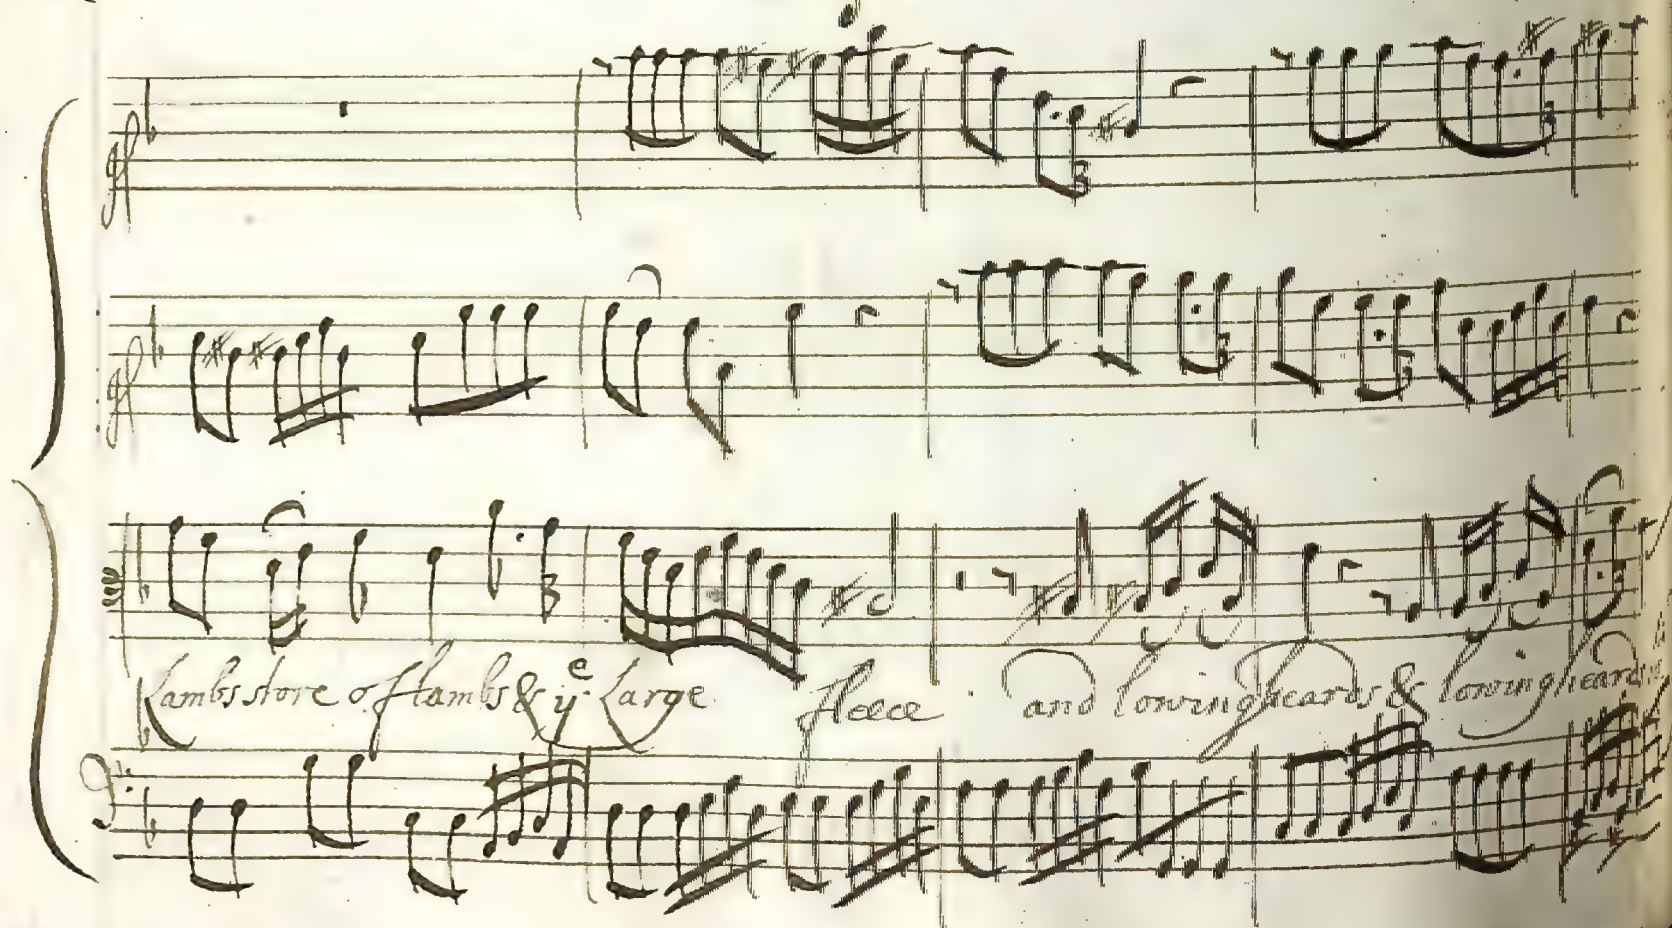 Lambs store of Lambs & yᵉ Large fleece and lowing heards & lowing heards